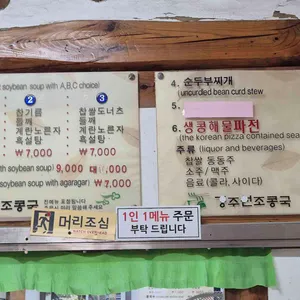 soybean soup with A,B,C choice)
2
3
참기름
찹쌀도너츠
들깨
들깨
계란노른자
계란노른자
흑설탕
흑설탕
₩ 7,000
₩ 7,000
soybean soup) 9,000
₩ 7,000
soybean soup with agaragar) ₩ 7,000
조콩국
4. 순두부찌개
(uncurded bean curd stew
5.
6. 생콩해물파전
(the korean pizza contained sea
주류 (liquor and beverages)
찹쌀 동동주
소주/ 맥주
음료(콜라, 사이다)
조콩국
머리조심
1인 1메뉴 주문
부탁 드립니다